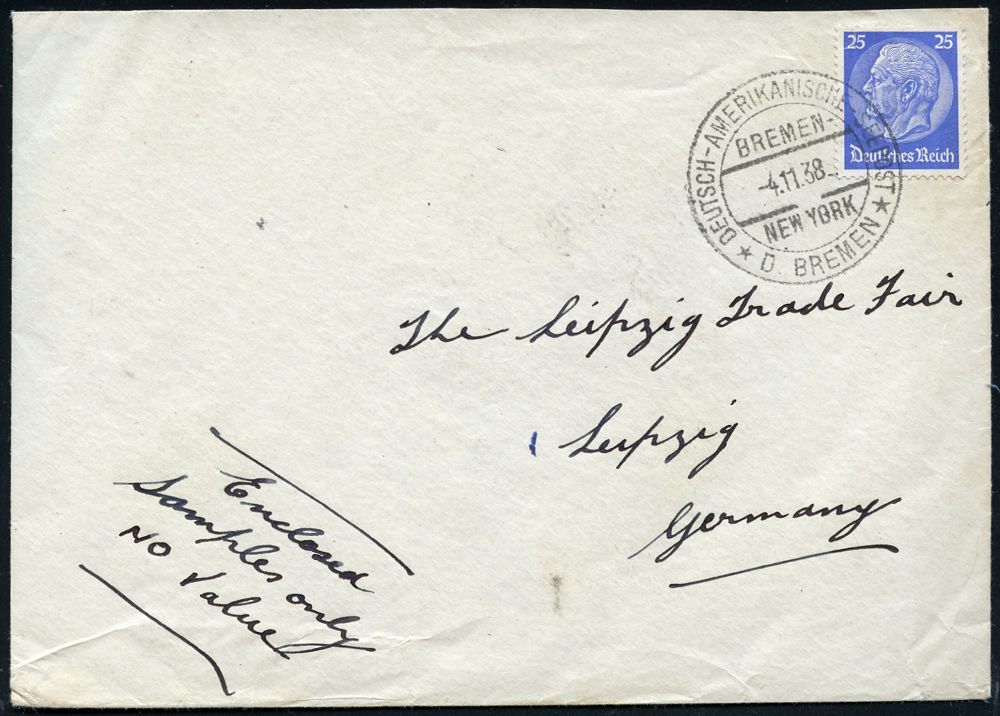 25 25
Deutsches Reich
DEUTSCH-AMERIKANISCHE SEEPOST
BREMEN-
-4.11.38
NEW YORK
★ D. BREMEN ★
The Leipzig Trade Fair
Leipzig
Germany
Enclosed
Samples only
NO Value